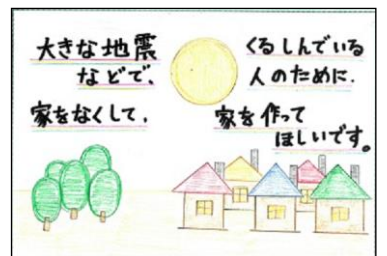 大きな地震
などで、
家をなくして、
くるしんでいる
人のために、
家を作って
ほしいです。